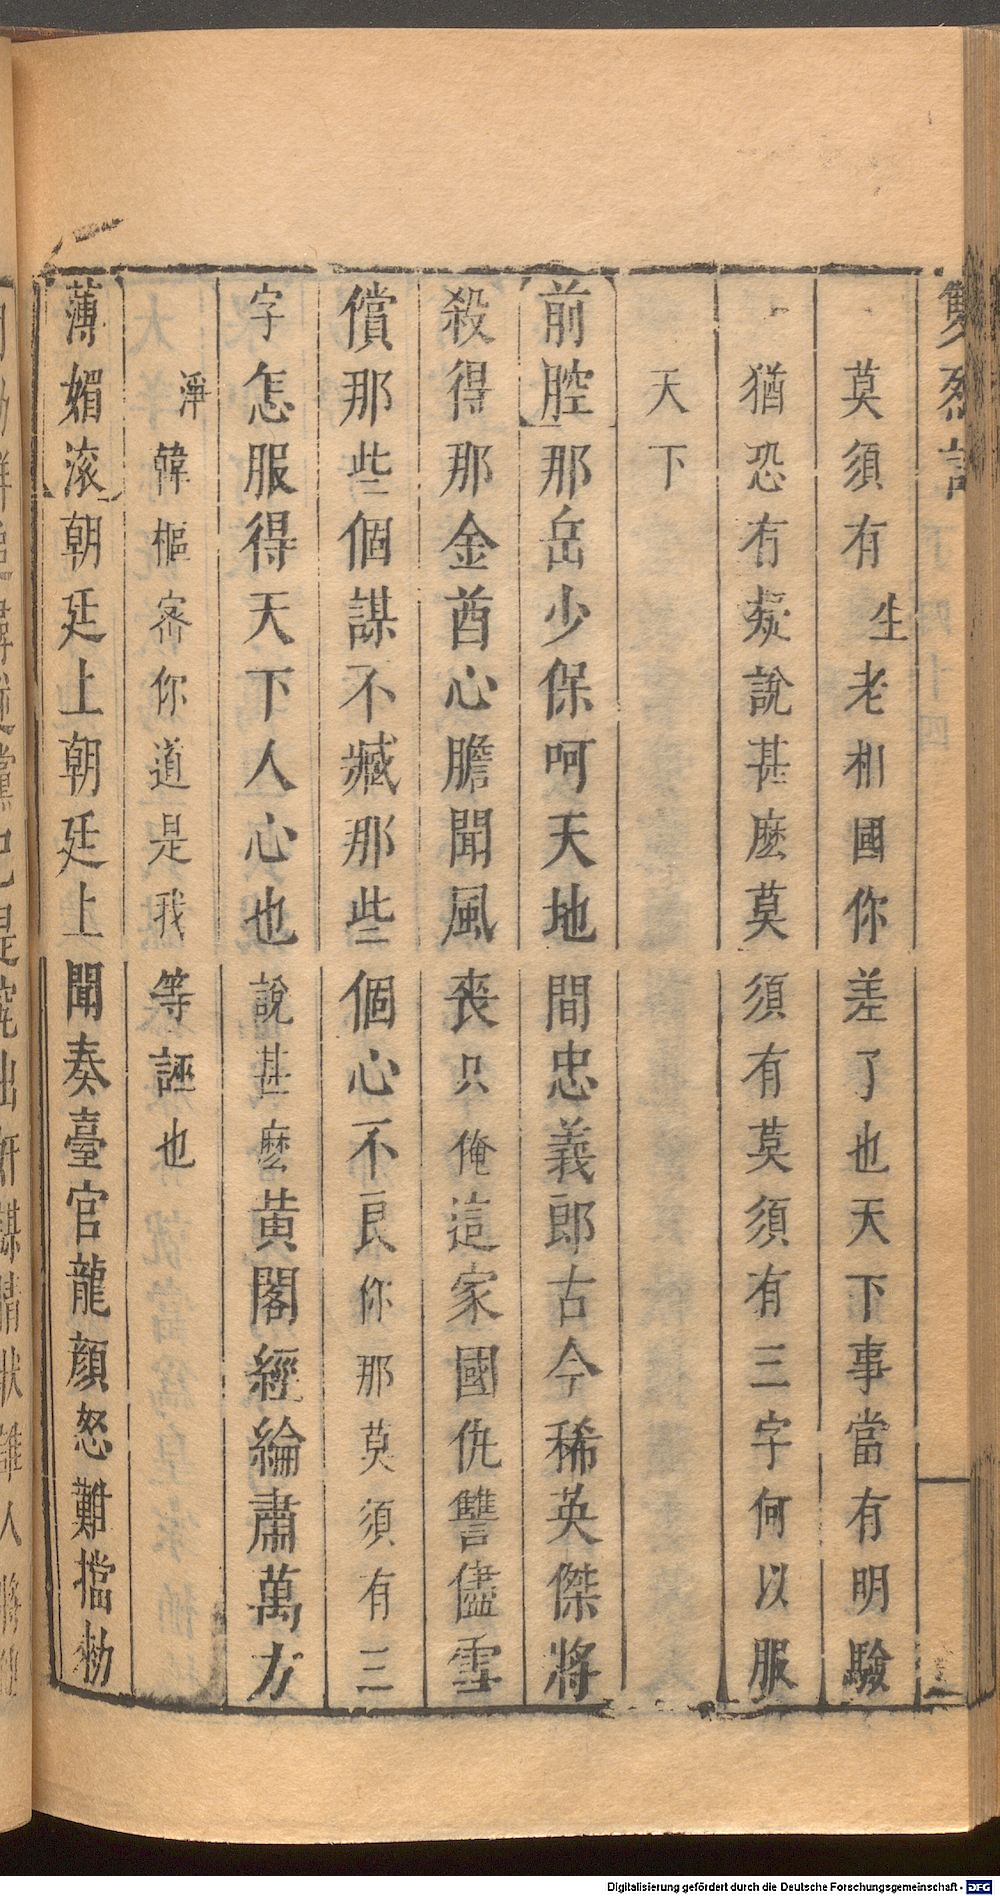 雙烈記
莫須有生老相國你差了也天下事當有明驗
猶恐有疑說甚麽莫須有莫須有三字何以服
天下
前腔那岳少保呵天地間忠義郎古今稀英傑將
殺得那金酋心膽聞風喪只俺這家國仇讐儘雪
償那些個謀不臧那些個心不良你那莫須有三
字怎服得天下人心也說甚麽黃閣經綸肅萬方
淨韓樞密你道是我等誣也
薄媚滾朝廷上朝廷上聞奏臺官龍顏怒難擋勑
Digitalisierung gefördert durch die Deutsche Forschungsgemeinschaft - DFG